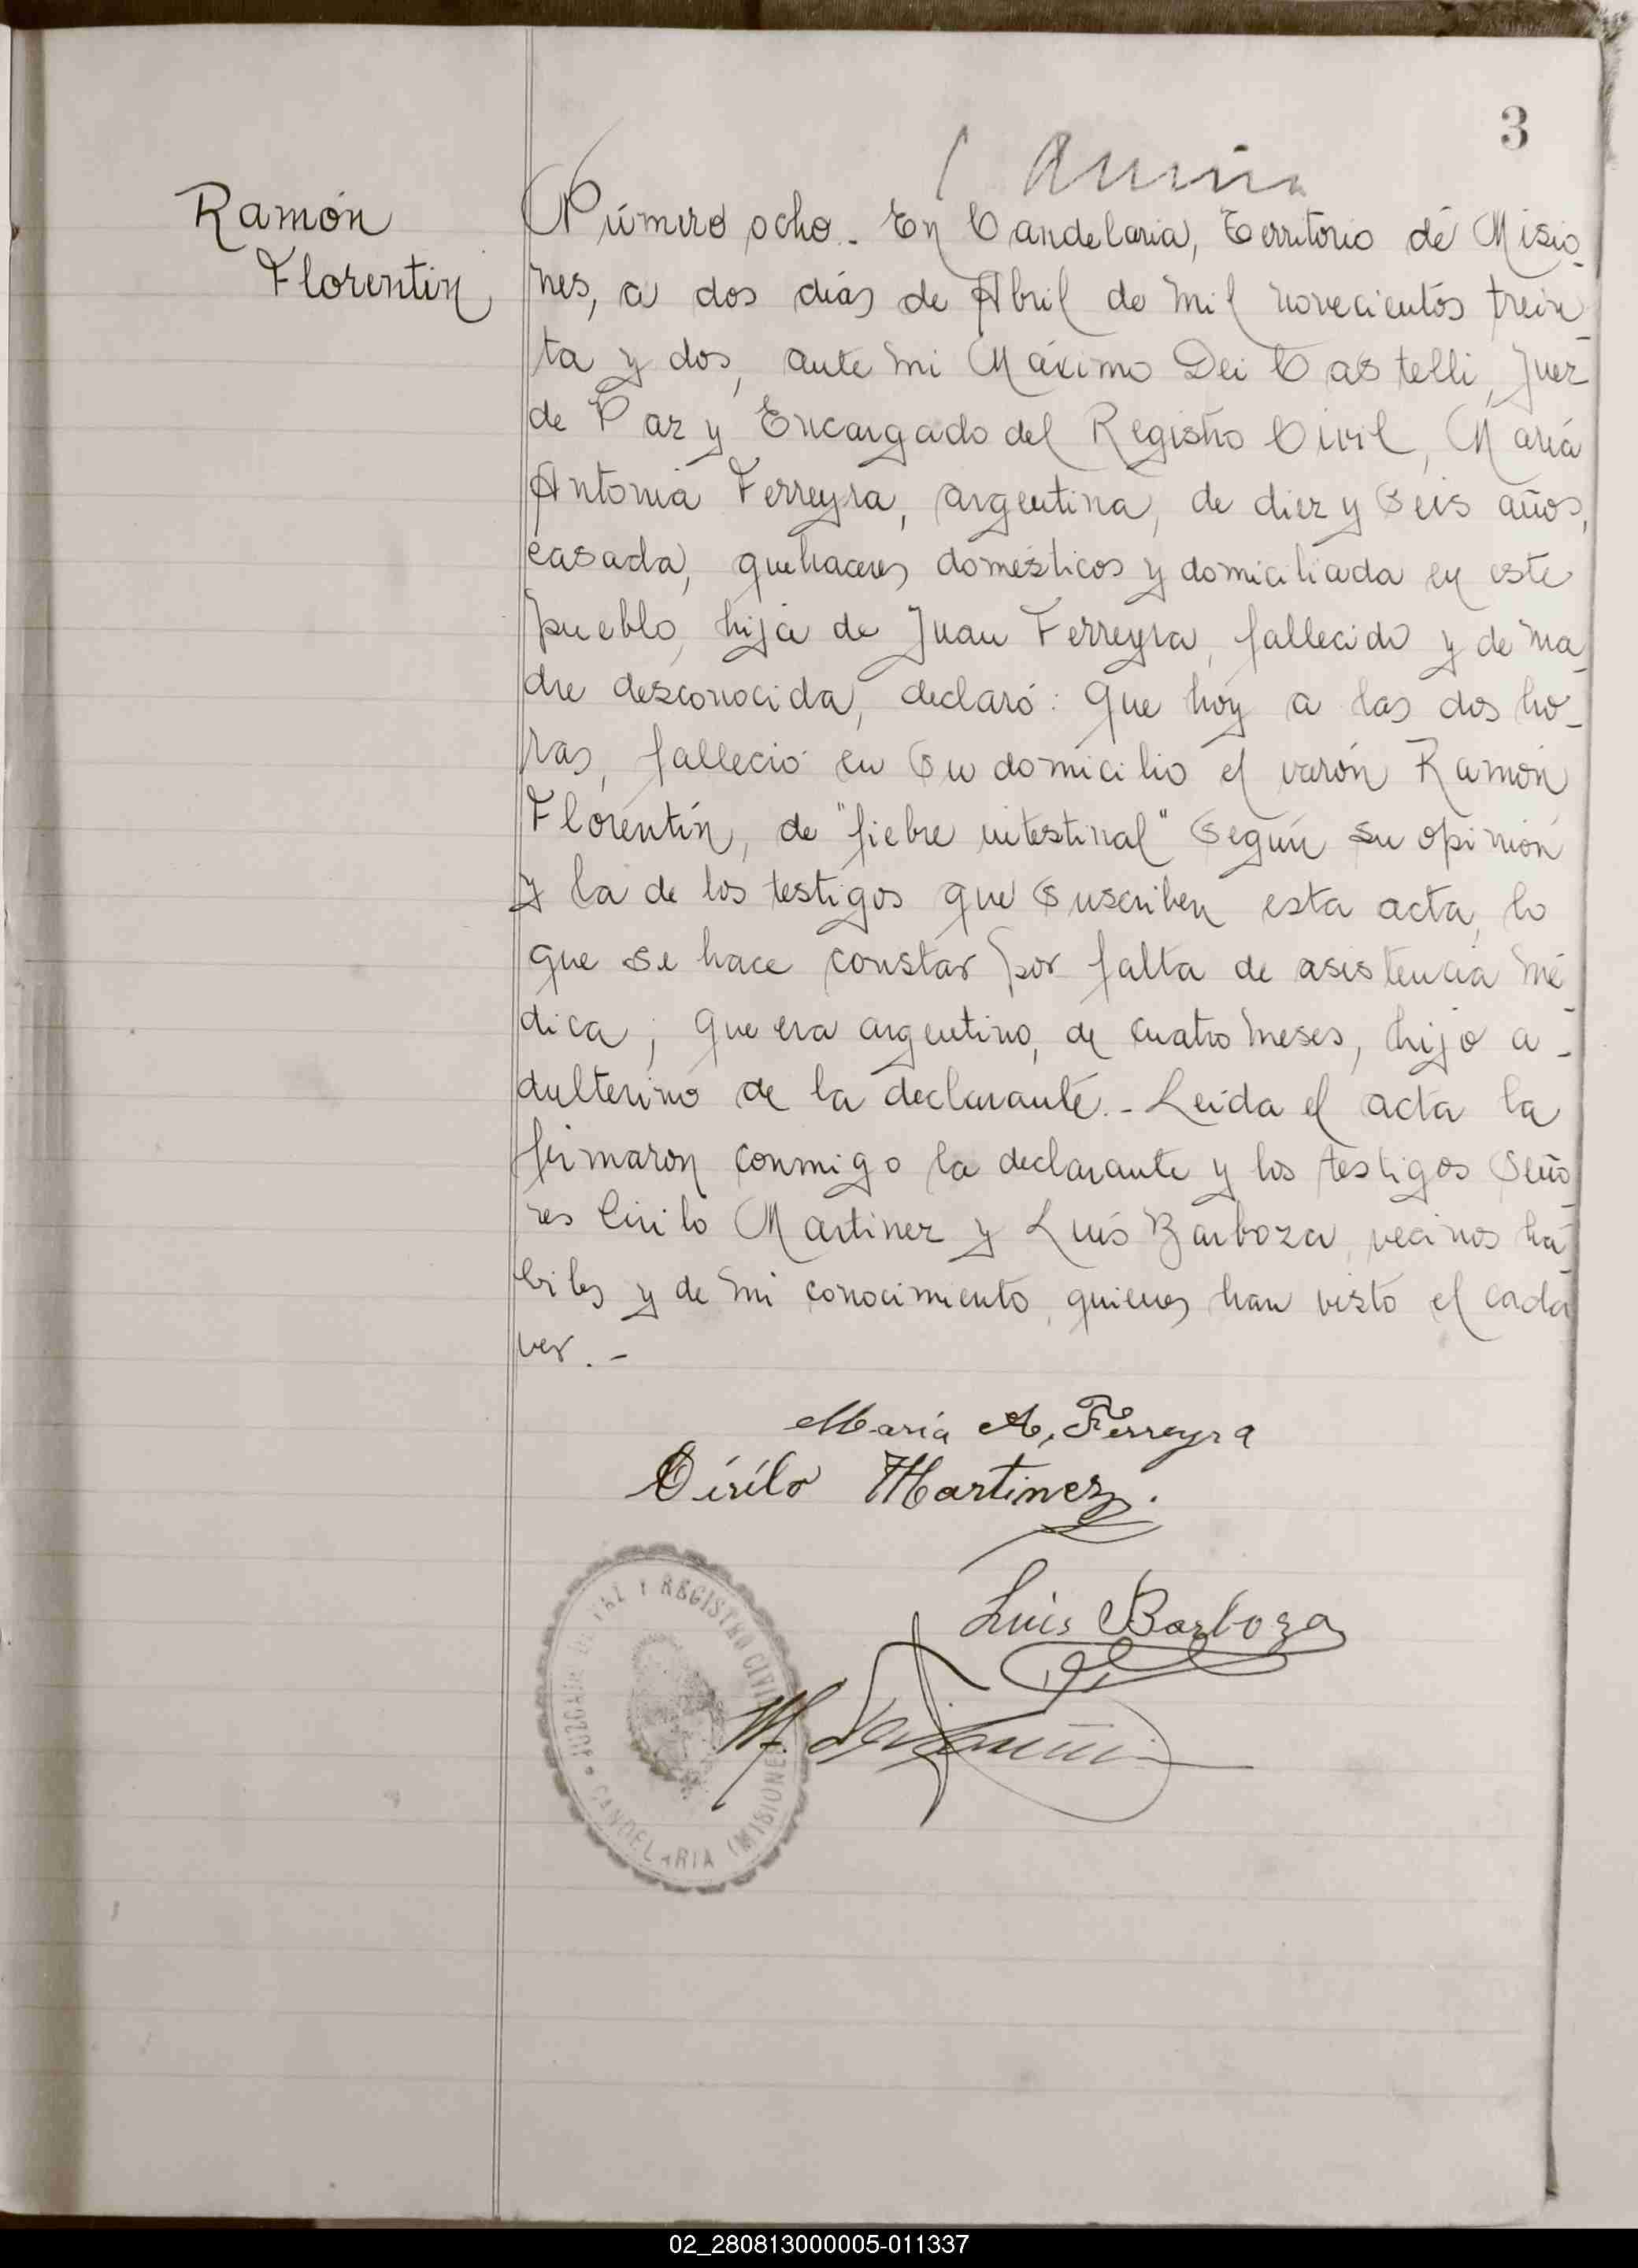 3
Ramón
Florentin
Número ocho.- En Candelaria, Territorio de Misio-
nes, a dos días de Abril de mil novecientos trein-
ta y dos, ante mi Máximo Dei Castelli, Juez
de Paz y Encargado del Registro Civil, María
Antonia Ferreyra, argentina, de diez y seis años,
casada, quehaceres domésticos y domiciliada en este
pueblo, hija de Juan Ferreyra, fallecido y de ma-
dre desconocida, declaró: Que hoy a las dos ho-
ras, falleció en su domicilio el varón Ramón
Florentín, de "fiebre intestinal" según su opinión
y la de los testigos que suscriben esta acta, lo
que se hace constar por falta de asistencia mé-
dica; que era argentino, de cuatro meses, hijo a-
dulterino de la declarante.- Leida el acta la
firmaron conmigo la declarante y los testigos Seño-
res Cirilo Martinez y Luis Barboza, vecinos há-
biles y de mi conocimiento, quienes han visto el cadá-
ver.-
María A, Ferreyra
Cirilo Martinez.
Luis Barboza
JUZGADO DE PAZ Y REGISTRO CIVIL
CANDELARIA (MISIONES)
02_280813000005-011337